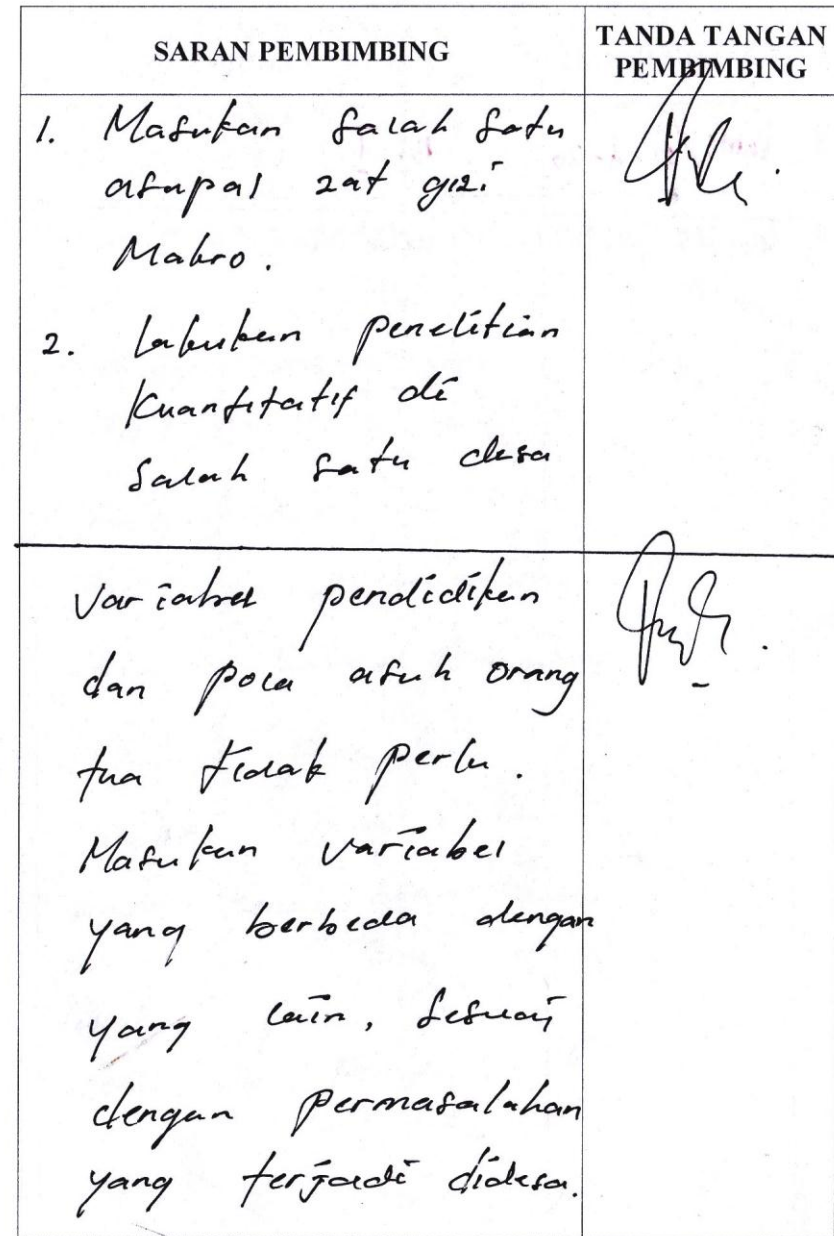 SARAN PEMBIMBING
TANDA TANGAN
PEMBIMBING
1. Masukan salah satu
asupal zat gizi
Makro.
2. lakukan penelitian
Kuantitatif di
Salah satu desa
Variabel pendidikan
dan pola asuh orang
tua tidak perlu.
Masukan variabel
yang berbeda dengan
yang lain, sesuai
dengan permasalahan
yang terjadi didesa.